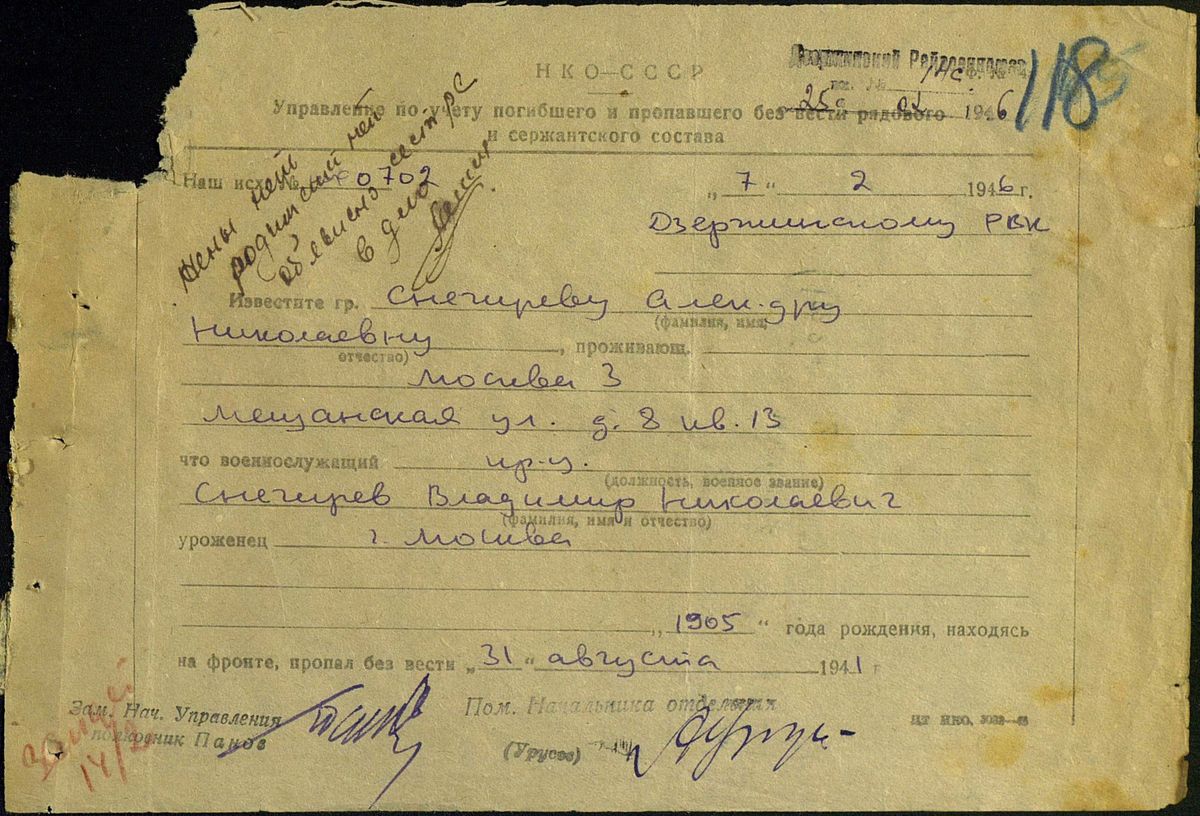 НКО—СССР
Дзержинский Райвоенкомат
25 1946
118
Управление по учету погибшего и пропавшего без вести рядового
и сержантского состава
Наш исх. № 0702
„7“ 2 1946 г.
Дзержинскому РВК
Жены нет
родителей нет
объявлено сестре
в
Известите гр. Снегиреву Алек-дру
(фамилия, имя,
Николаевну
отчество)
, проживающ.
Москва 3
Мещанская ул. д. 8 кв. 13
что военнослужащий кр-ц.
(должность, военное звание)
Снегирев Владимир Николаевич
(фамилия, имя и отчество)
уроженец г. Москва
„1905“ года рождения, находясь
на фронте, пропал без вести „31“ августа 1941 г
Зам. Нач. Управления
полковник Панов
Пом. Начальника отделения
(Урусов)
14/2